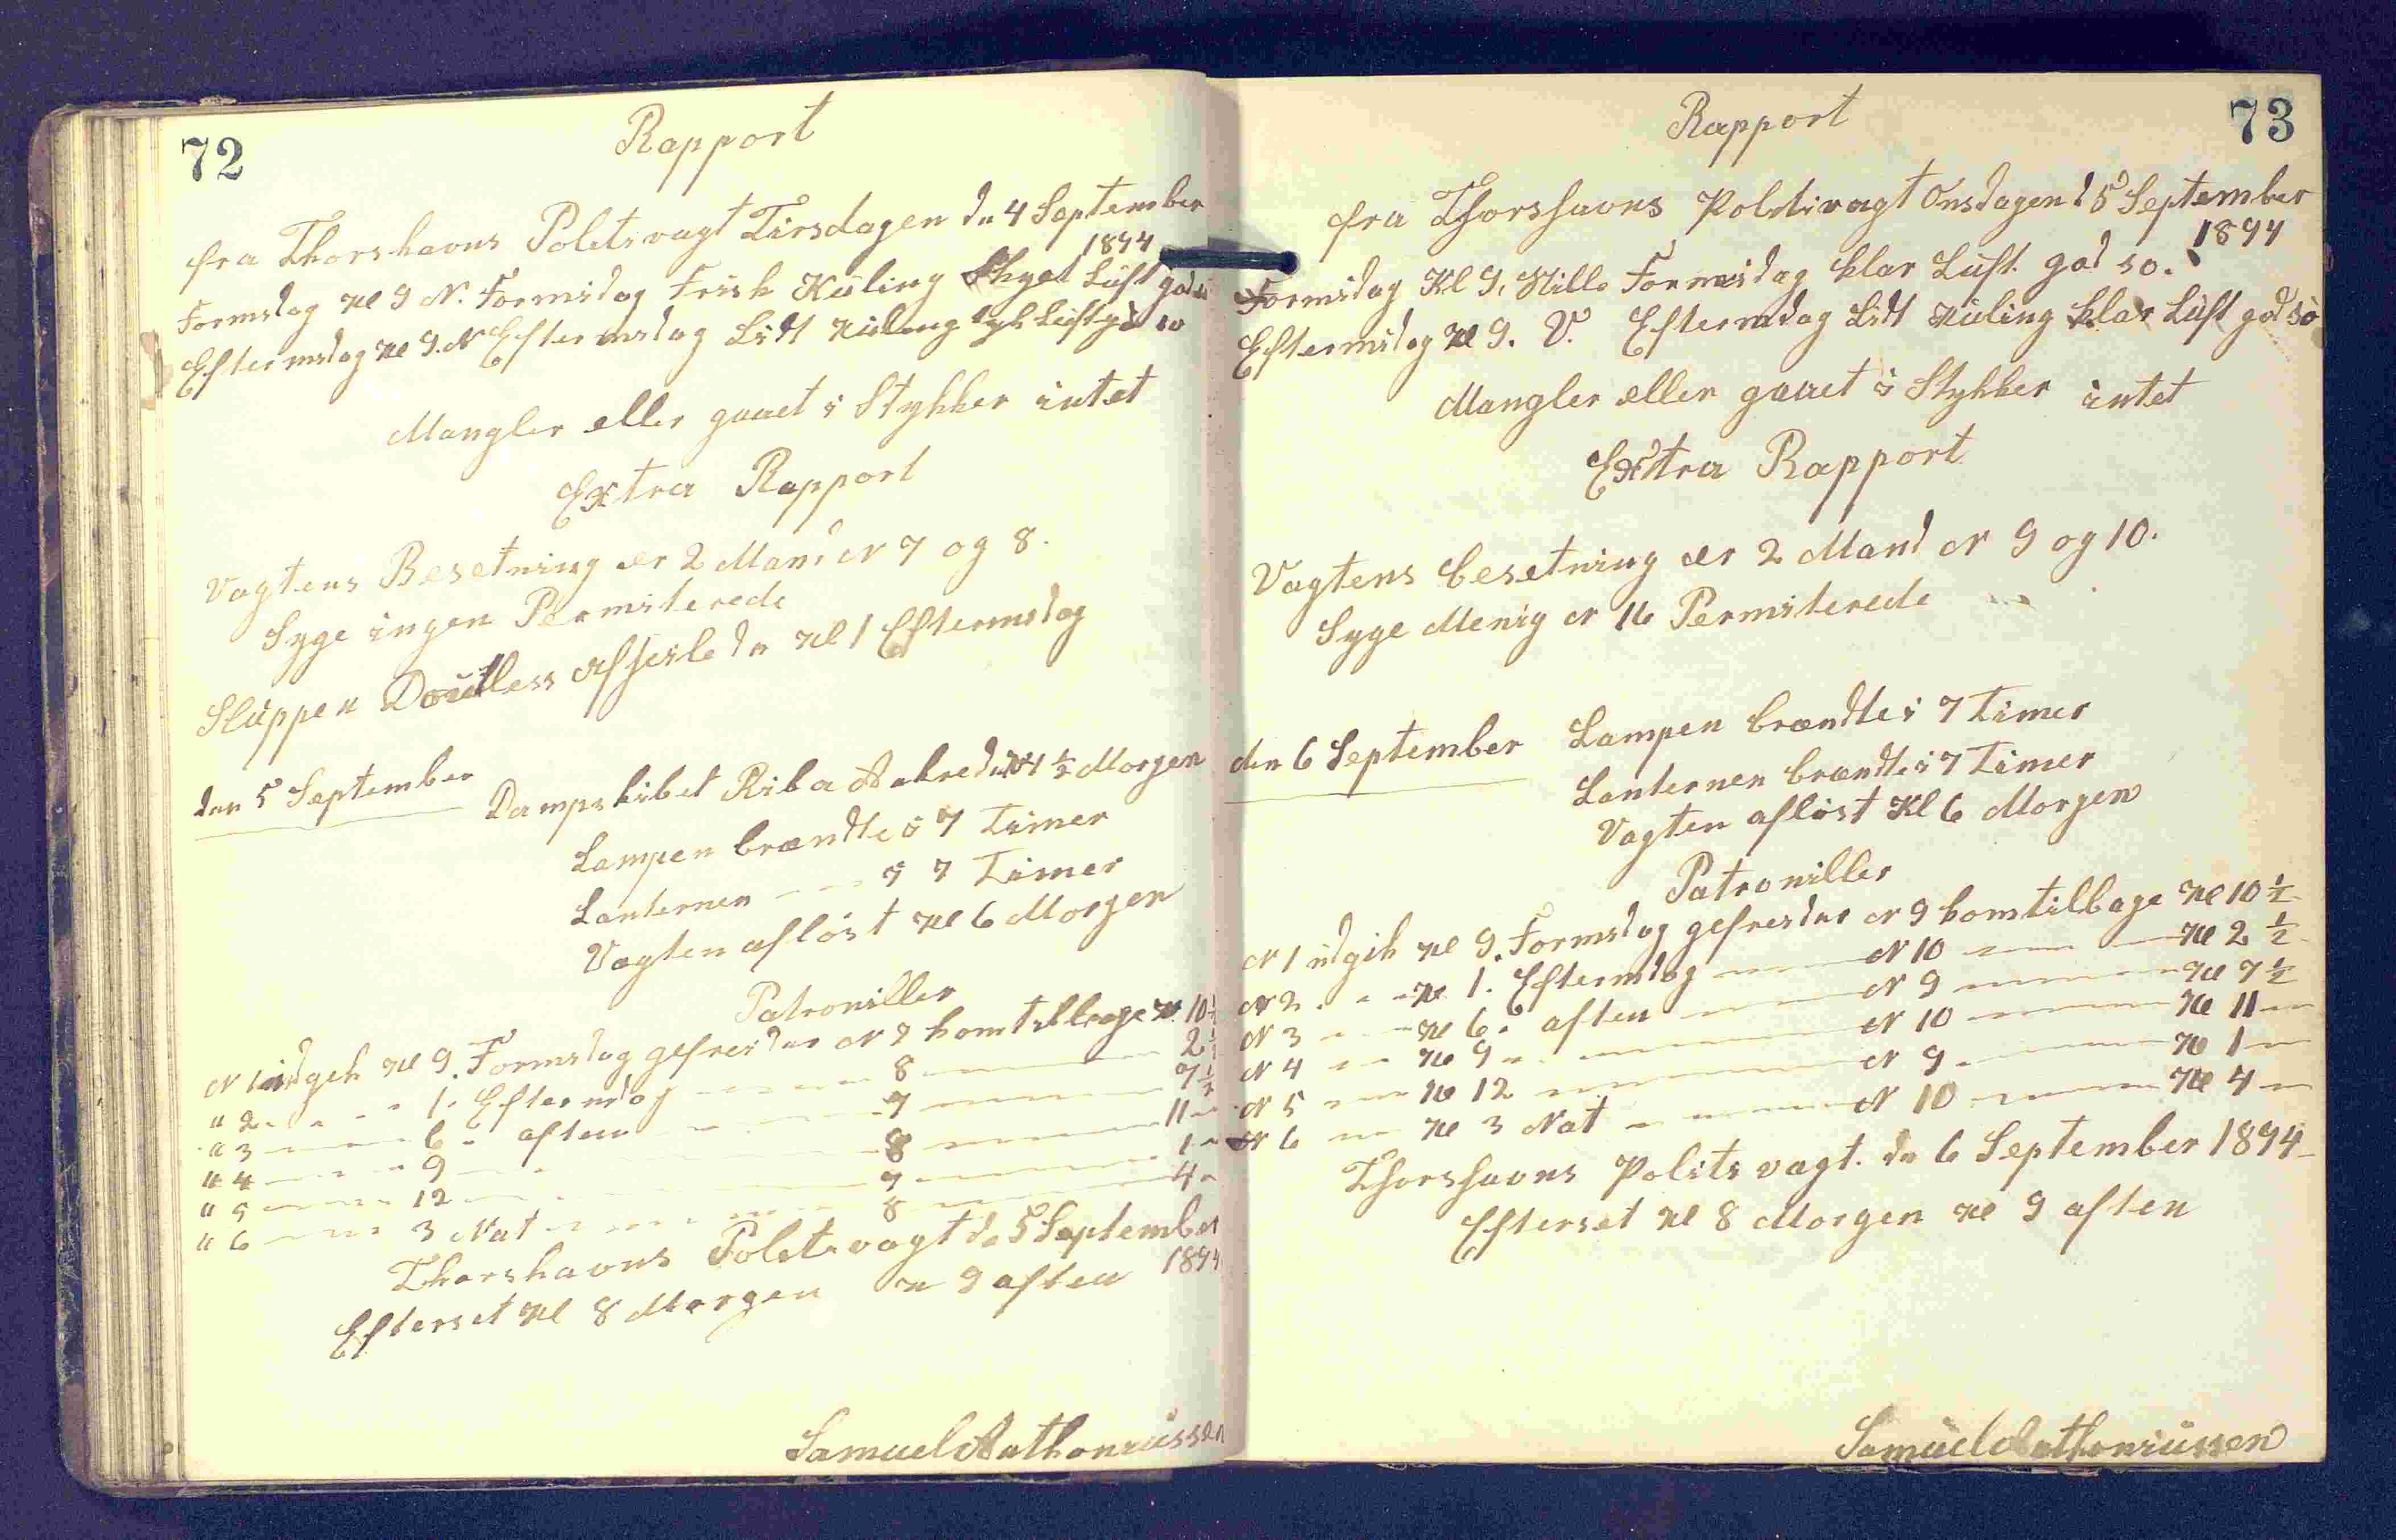 72
Rapport
fra Thorshavns Politivagt Tirsdagen dn 4 September
1894
Formdag Kl 9 N. Formidag Frisk Küling Skyet Lüft god
Eftermdag Kl 9. N Eftermdag Lidt Küling tyk Lüft god so
Mangler eller gaaet i Stykker intet
Extra Rapport
Vagtens Besetning er 2 Mand N 7 og 8.
Syge ingen Permiterede
Slüppen afseilede Kl 1 Eftermdag
den 5 September
Dampskibet Riba Ankrede Kl 4 ½ Morgen
Lampen brændte i 7 Timer
Lanternen - - - i 7 Timer
Vagten afløst Kl 6 Morgen
Patroniller
N 1 üdgik Kl 9. Formdag gefreidar N 7 kom tilbage Kl 10 ½
" 2 - - - 1. Eftermdag - - - 8 - - - 2 ½
" 3 - - - 6 - aften - - - 7 - - - 7 ½
" 4 - - - 9 - - - 8 - - - 11 -
" 5 - - - 12 - - - 7 - - - 1 -
" 6 - - - 3 Nat - - - 8 - - - 4 -
Thorshavns Politivagt dn 5 September
1894
Efterset Kl 8 Morgen Kl 9 aften
Samuel Anthoniüssen
73
Rapport
fra Thorshavns Politivagt Onsdagen d 5 September
1894
Formidag Kl 9. Stille Formidag klar Lüft god so.
Eftermidag Kl 9. V. Eftermdag Lidt Küling klar Lüft god so
Mangler eller gaaet i Stykker intet
Extra Rapport
Vagtens besetning er 2 Mand N 9 og 10.
Syge Menig N 16 Permiterede
den 6 September
Lampen brændte i 7 Timer
Lanternen brændte i 7 Timer
Vagten afløst Kl 6 Morgen
Patroniller
N 1 üdgik Kl 9. Formdag gefreidar N 9 kom tilbage Kl 10 ½
N 2 - - - Kl 1. Eftermdag - - - N 10 - - - Kl 2 ½
N 3 - - - Kl 6. aften - - - N 9 - - - Kl 7 ½
N 4 - - - Kl 9 - - - N 10 - - - Kl 11 -
N 5 - - - Kl 12 - - - N 9 - - - Kl 1 -
N 6 - - - Kl 3 Nat - - - N 10 - - - Kl 4 -
Thorshavns Politivagt. dn 6 September 1894
Efterset Kl 8 Morgen Kl 9 aften
Samüel Anthoniüssen